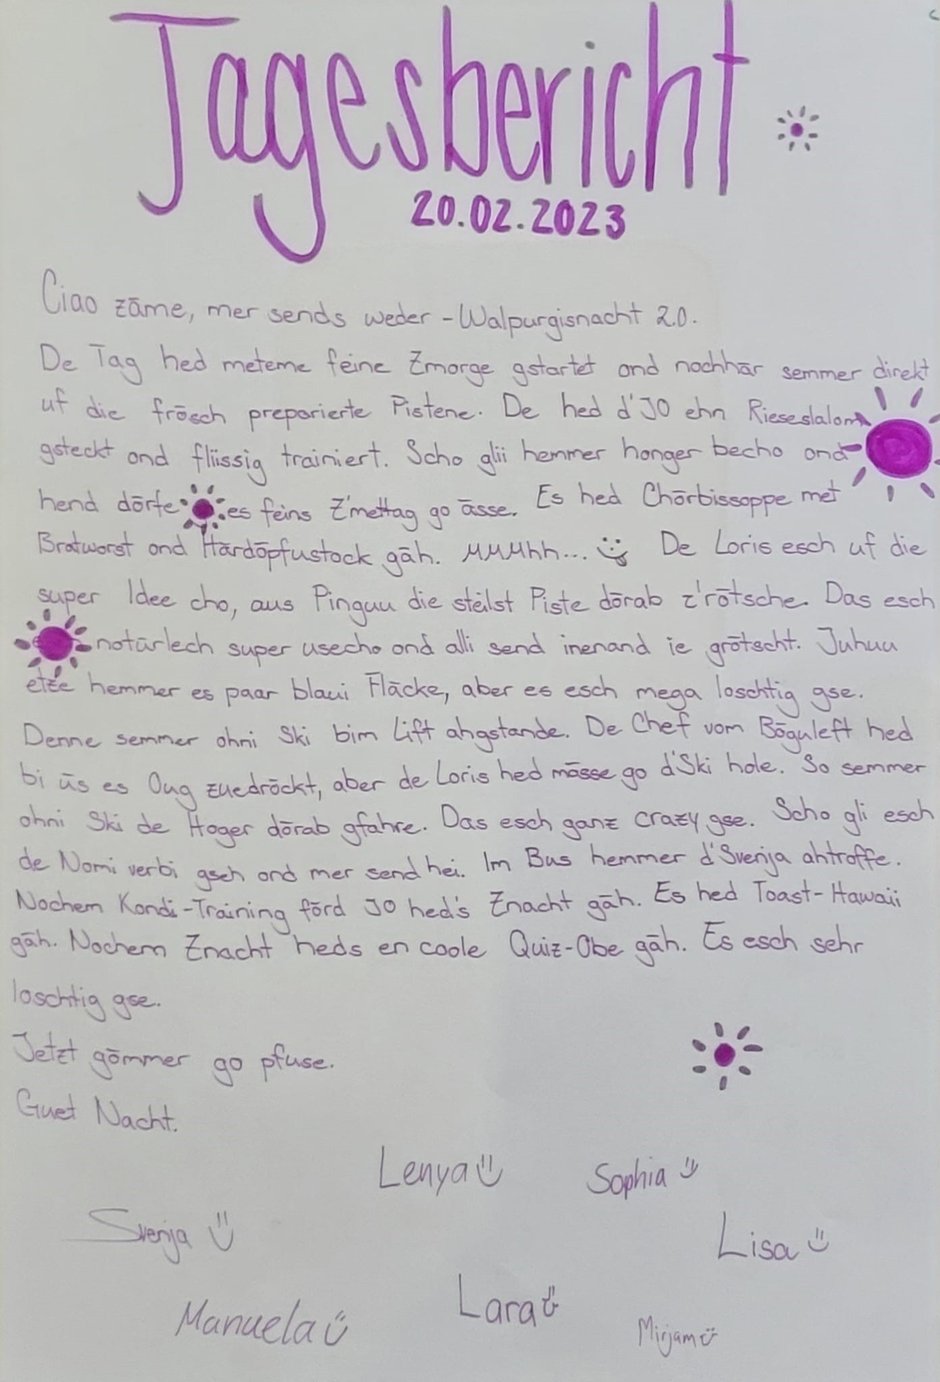 Tagesbericht
20.02.2023
Ciao zäme, mer sends weder - Walpurgisnacht 2.0.
De Tag hed meteme feine Zmorge gstartet ond nochhär semmer direkt
uf die frösch preparierte Pistene. De hed d'JO ehn Rieseslalom
gsteckt ond fliissig trainiert. Scho glii hemmer honger becho ond
hend dörfe es feins Z'mettag go ässe. Es hed Chörbissoppe met
Bratworst ond Härdöpfustock gäh. MMMhh... De Loris esch uf die
super Idee cho, aus Pinguu die steilst Piste dörab z'rötsche. Das esch
natürlech super usecho ond alli send inenand ie grötscht. Juhuu
etze hemmer es paar blaui Fläcke, aber es esch mega loschtig gse.
Denne semmer ohni Ski bim Lift ahgstande. De Chef vom Böguleft hed
bi üs es Oug zuedröckt, aber de Loris hed mösse go d'Ski hole. So semmer
ohni Ski de Hoger dörab gfahre. Das esch ganz crazy gse. Scho gli esch
de Nomi verbi gseh ond mer send hei. Im Bus hemmer d'Svenja ahtroffe.
Nochem Kondi-Training förd JO hed's Znacht gäh. Es hed Toast-Hawaii
gäh. Nochem Znacht heds en coole Quiz-Obe gäh. Es esch sehr
loschtig gse.
Jetzt gömmer go pfuse.
Guet Nacht.
Lenya Sophia
Svenja Lisa
Manuela Lara Mirjam